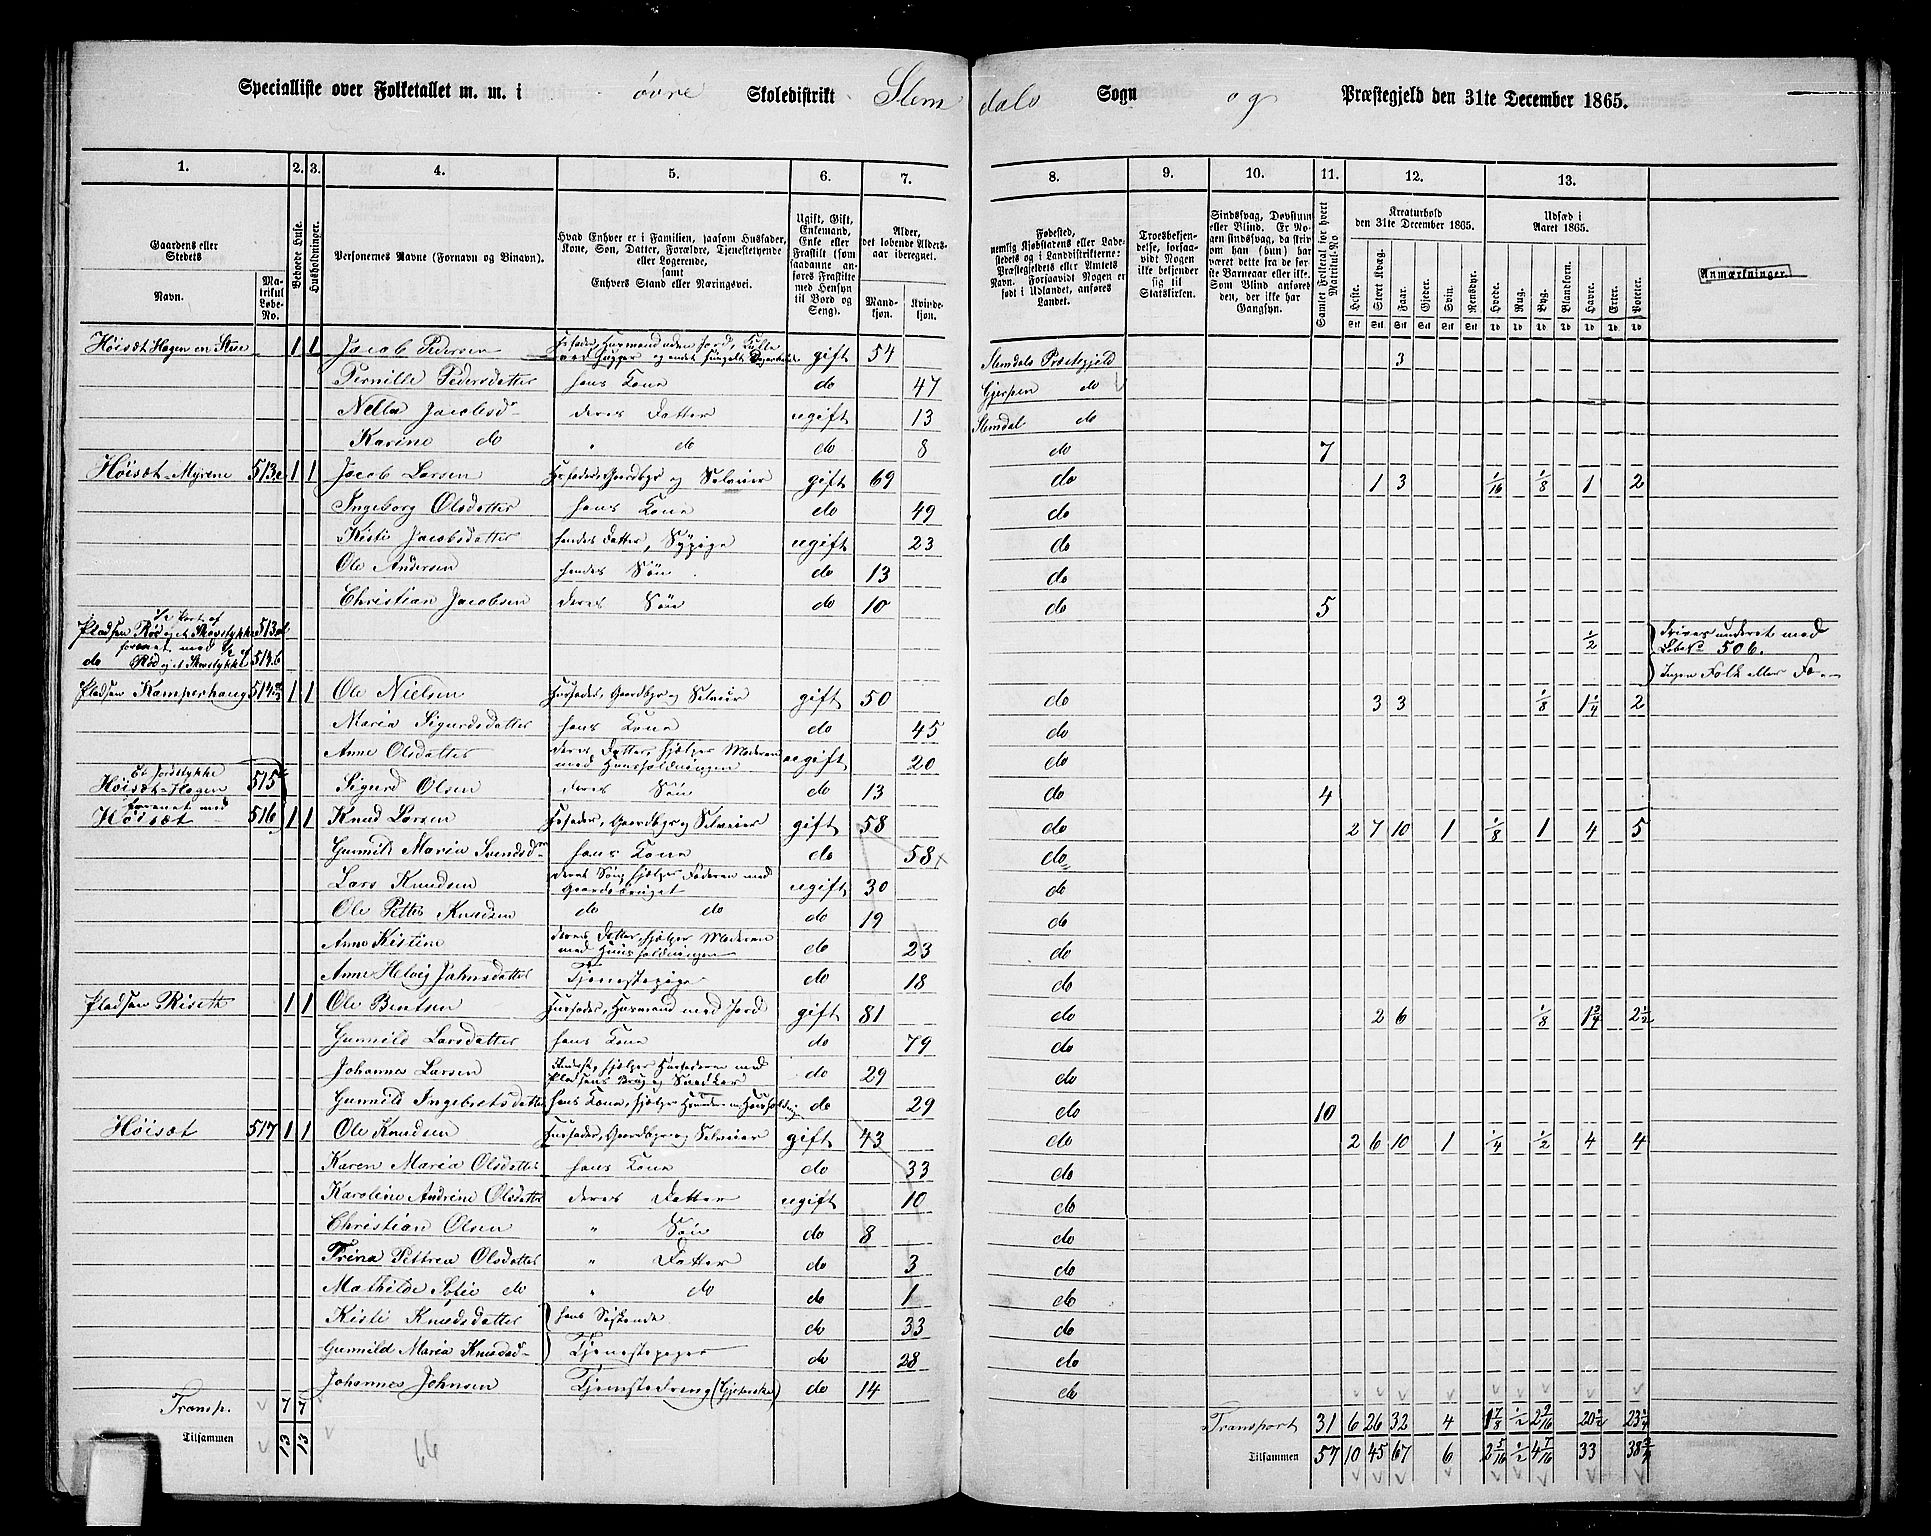 Specialliste over Folketallet m. m. i øvre Skoledistrikt Slemdals Sogn og Præstegjeld den 31te December 1865.
1. 2. 3. 4. 5. 6. 7. 8. 9. 10. 11. 12. 13.
Gaardens eller Stedets Navn. Matrikul Løbe-No. Beboede Huse. Husholdninger. Personernes Navne (Fornavn og Tilnavn). Hvad Enhver er i Familien, saasom Husfader, Kone, Søn, Datter, Forældre, Tjenestetyende eller Logerende, samt Enhvers Stand eller Næringsvei. Ugift, Gift, Enkemand, Enke eller Fraskilt (som saadanne anføres Fraskilte med Hensyn til Bord og Seng). Alder, det løbende Alders-aar iberegnet. Mandkjøn. Kvindekjøn.
Fødested, nemlig Kjøbstadens eller Ladestedets og i Landdistrikterne: Præstegjeldets eller Amtets Navn. Forsaavidt Nogen er født i Udlandet, anføres Landet. Troesbekjendelse, forsaavidt Nogen ikke bekjender sig til Statskirken. Sindssvag, Døvstum eller Blind. Er Nogen sindssvag, da skrives om han (hun) har været dette fra de første Barneaar eller ikke. Som Blind anføres den, der ikke har Gangsyn. Samlet Folketal for hvert Matrikul-No. Kreaturhold den 31te December 1865. Udsæd i Aaret 1865. Anmærkninger.
Heste. Stort Kvæg. Faar. Gjeder. Svin. Rensdyr. Hvede. Rug. Byg. Blandkorn. Havre. Erter. Poteter.
Høisæt Hagen en Stue 1 1 Jacob Pedersen gift 54 Slemdals Præstegjeld 3
Pernille Pedersdatter hans Kone do 47 Gjerpen do
Nella Jacobsdr deres Datter ugift 13 Slemdal do
Karine do " do do 8 do 7
Høisæt-Myrene 513.c 1 1 Jacob Larsen Husfader, Gaardbgr og Selveier gift 69 do 1 3 1/16 1/8 1 2
Ingeborg Olsdatter hans Kone do 49 do
Kisti Jacobsdatter hendes Datter, Sypige ugift 23 do
Ole Andersen hendes Søn do 13 do
Christian Jacobsen deres Søn do 10 do 5
1/2 Part af
Pladsen Rød og et Skovstykke 513.d 1/2 Drives underet med
forenet med 1/2 Løbe No 506.
do Rød og et Skovstykke 514.b Ingen Folk eller Fæ.
Pladsen Kamperhaug 514 1 1 Ole Nielsen Husfader, Gaardbgr og Selveier gift 50 do 3 3 1/8 1 1/4 2
Maria Sigurdsdatter hans Kone do 45 do
Anne Olsdatter deres Datter, hjælper Moderen med Huusholdningen ugift 20 do
Et Jordstykke
Høisæt-Hagen 515 Sigurd Olsen deres Søn do 13 do 4
forenet med
Høisæt 516 1 1 Knud Larsen Husfader, Gaardbgr og Selveier gift 58 do 2 7 10 1 1/8 1 4 5
Gunnild Maria Svendsdr hans Kone do 58 do
Lars Knudsen deres Søn, hjælper Faderen med Gaardsbruget ugift 30 do
Ole Petter Knudsen do do do 19 do
Anne Kistine deres Datter, hjælper Moderen med Huusholdningen do 23 do
Anne Helvig Johnsdatter Tjenestepige do 18 do
Pladsen Riseth 1 1 Ole Bentsen Husfader, Husmand med Jord gift 81 do 2 6 1/8 1 3/4 2 1/2
Gunnild Larsdatter hans Kone do 79 do
Johannes Larsen hjælper Husfaderen med Pladsens Brug og do 29 do
Gunnild Ingebretsdatter hans Kone, hjælper do 29 do 10
Høisæt 517 1 1 Ole Knudsen Husfader, Gaardbgr og Selveier gift 43 do 2 6 10 1 1/4 1/2 4 4
Karen Maria Olsdatter hans Kone do 33 do
Karoline Andrine Olsdatter deres Datter ugift 10 do
Christian Olsen " Søn do 8 do
Trina Pettrea Olsdatter " Datter do 3 do
Mathilde Sofie do " do do 1 do
Kisti Knudsdatter hans Søskende do 33 do
Gunnild Maria Knudsd Tjenestepiger do 28 do
Johannes Johnsen Tjenestedreng do 14 do
Transp. 7 7 Transport 31 6 26 32 4 1 7/8 1/2 2 9/16 20 1/2 23 1/4
Tilsammen 13 13 Tilsammen 57 10 45 67 6 2 5/16 1/2 4 7/16 33 38 3/4
66